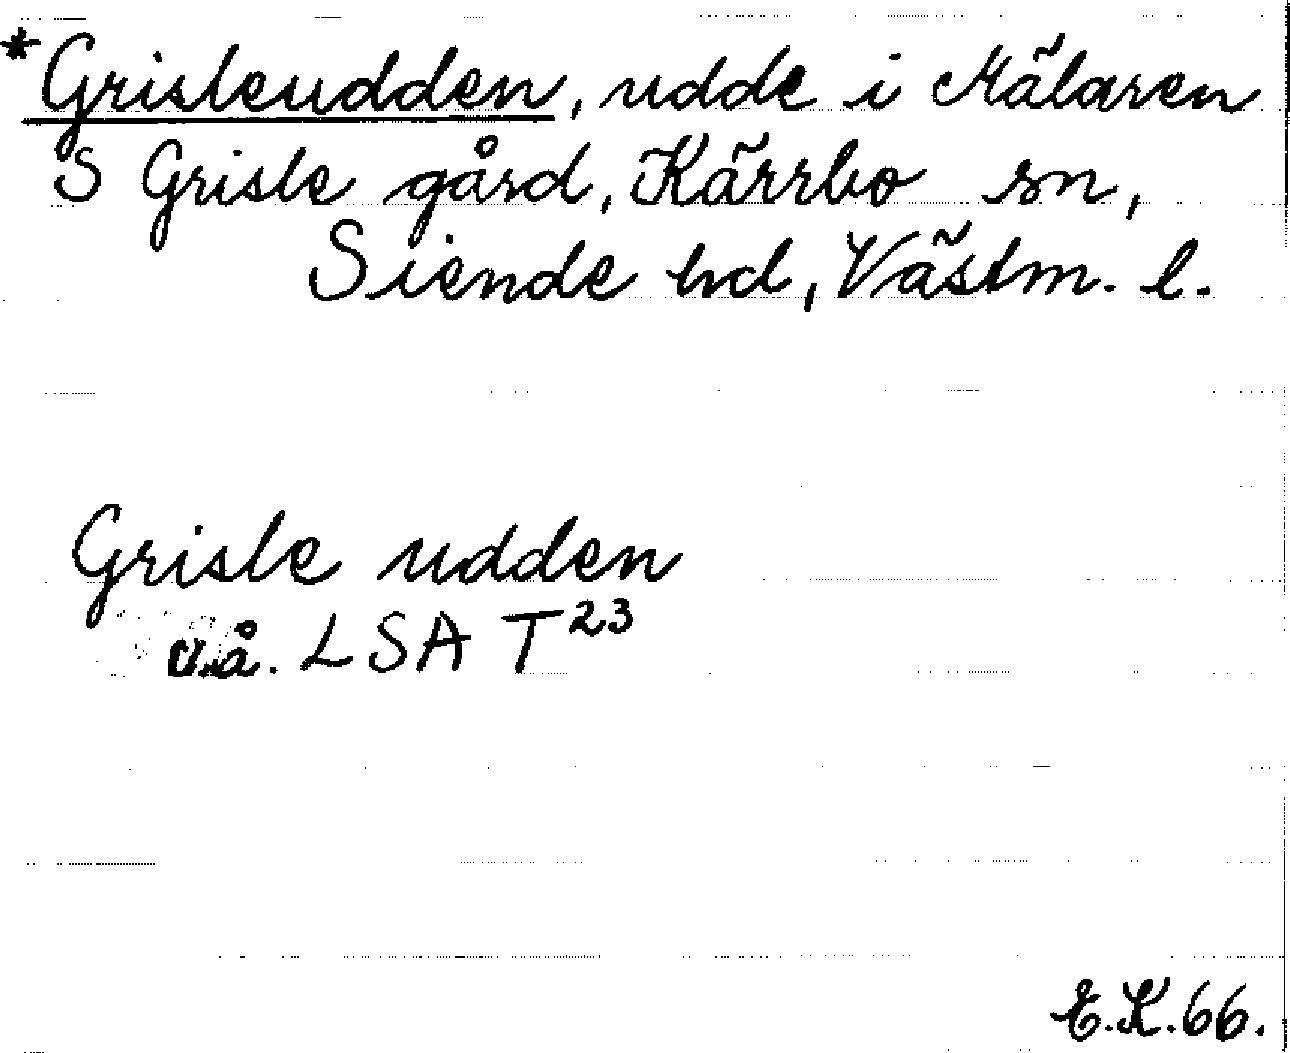 *Grisleudden, udde i Mälaren
S Grisle gård, Kärrbo sn,
Siende hd, Västm. l.
Grisle udden
u.å. LSA T²³
E.K.66.